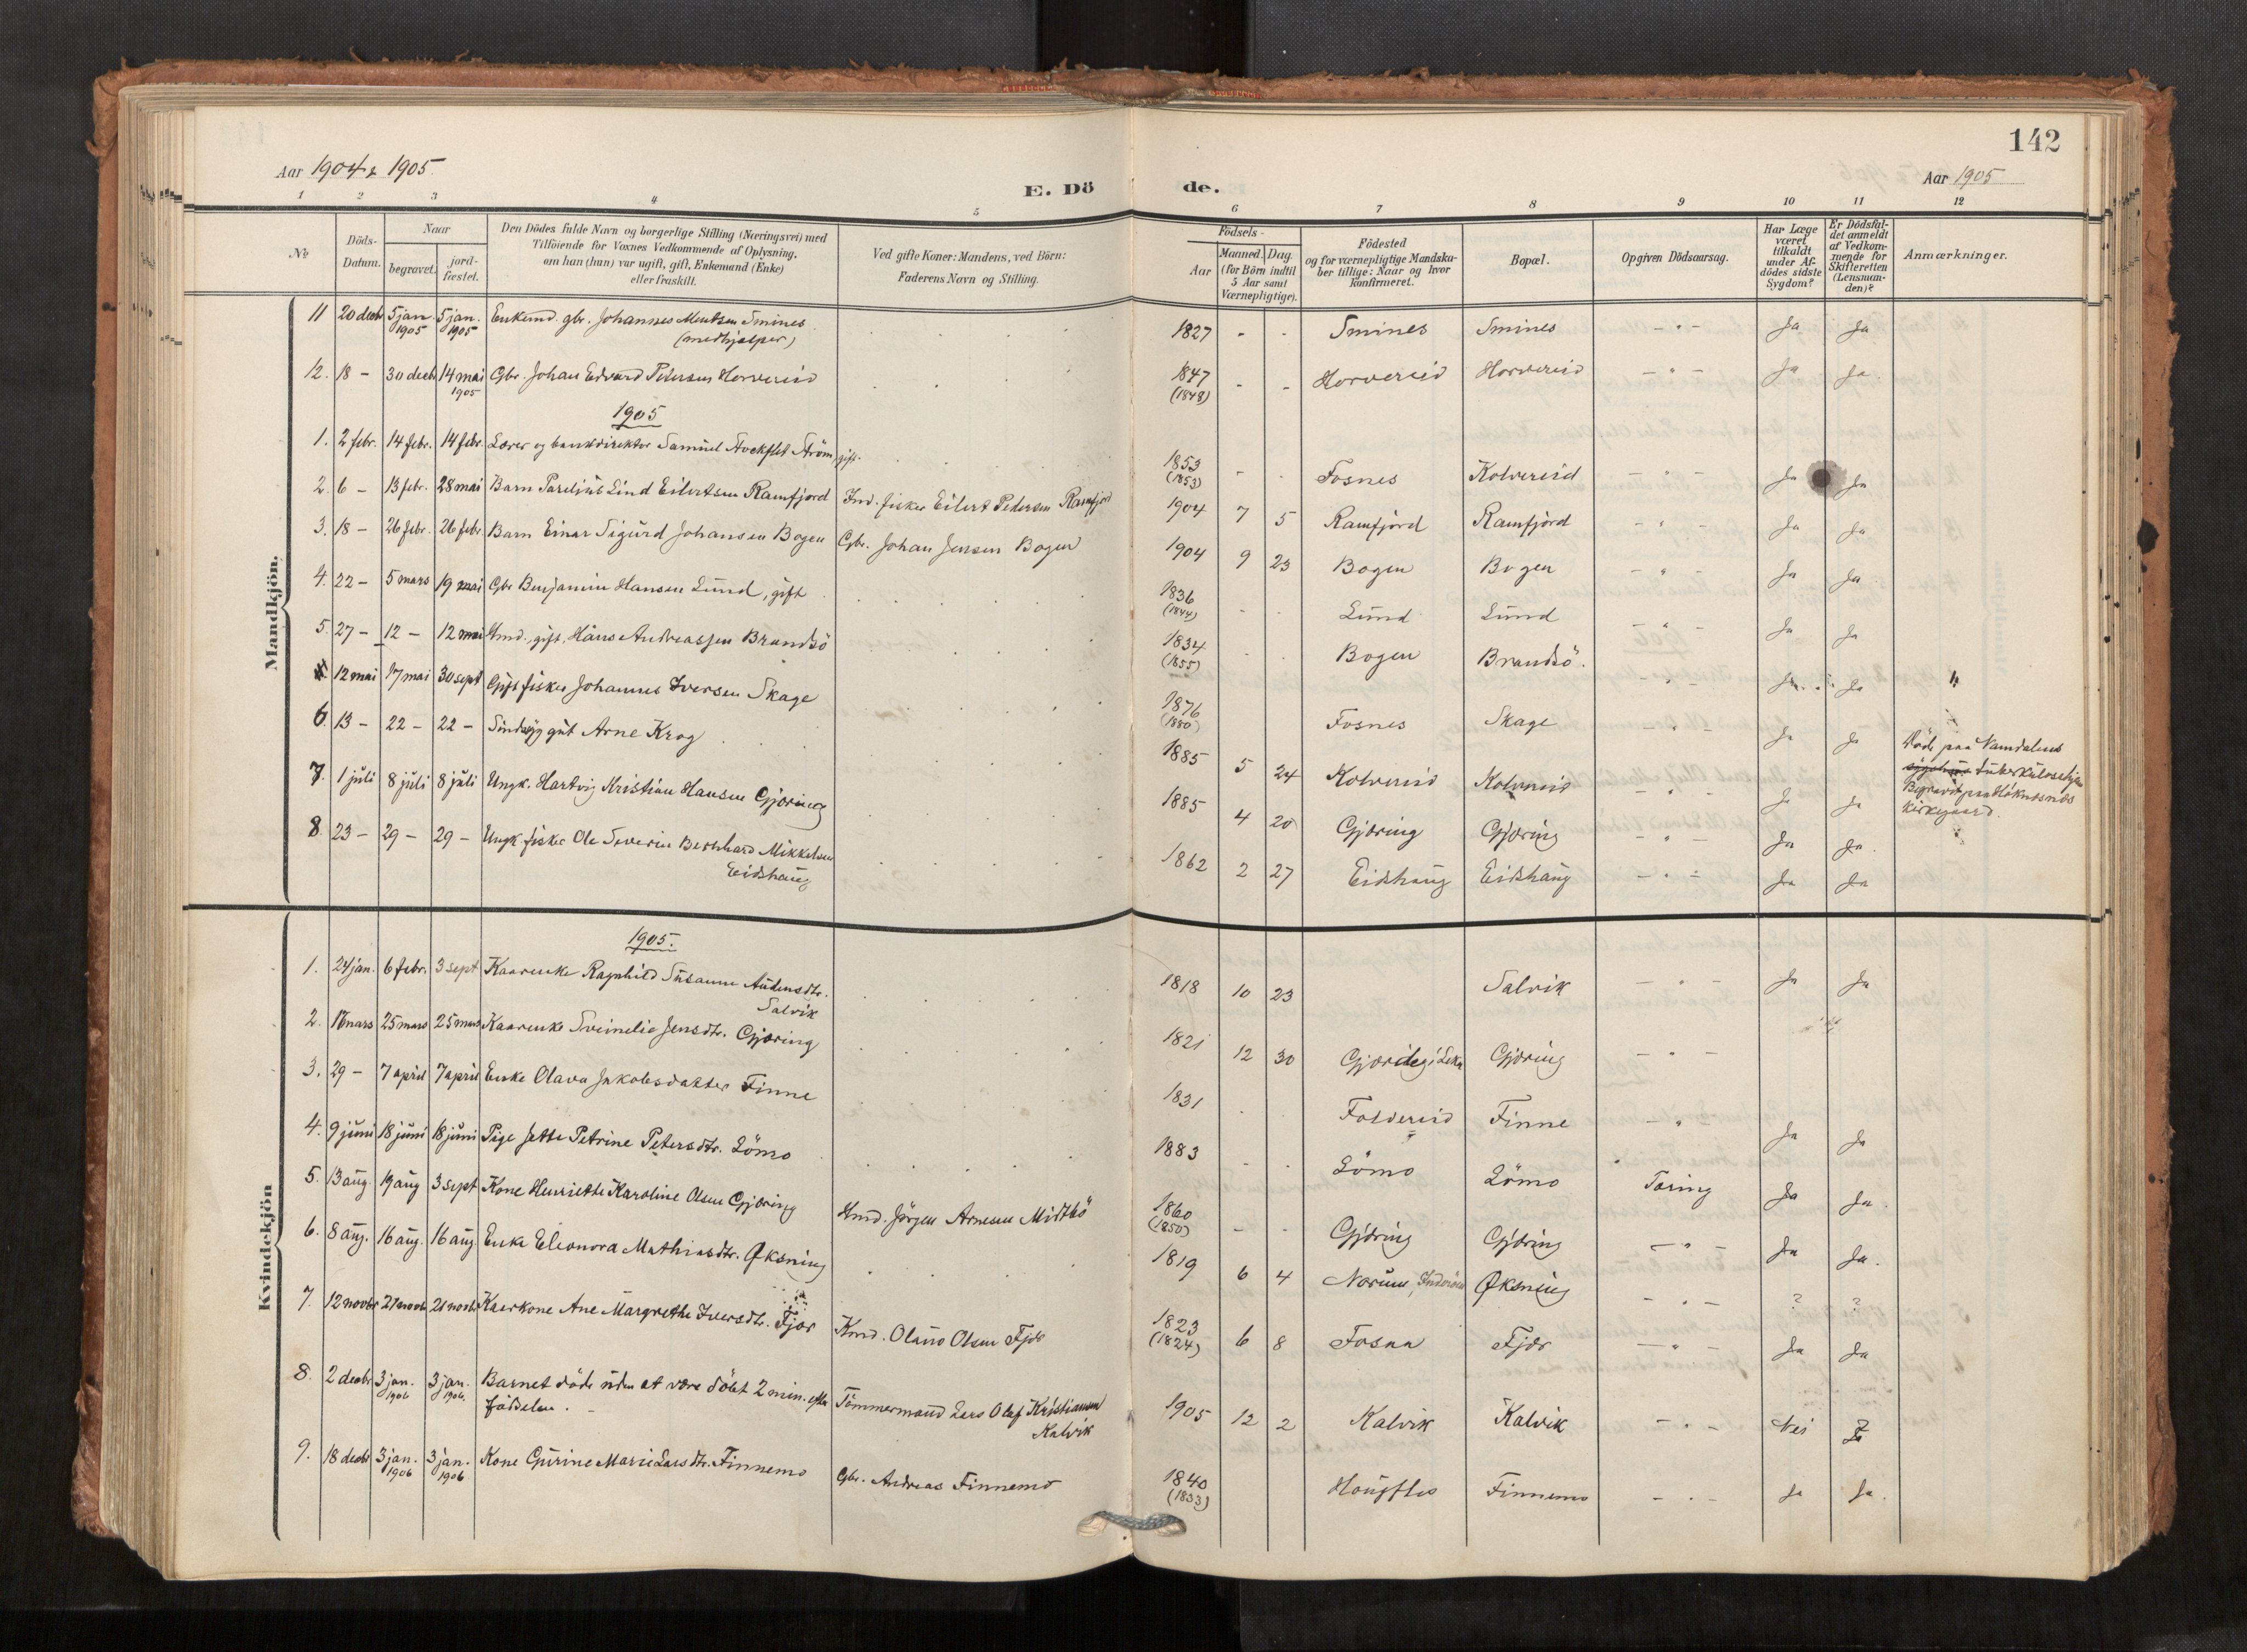 142
Aar 1904 & 1905.
E. Dö de.
Aar 1905
1 2 3 4 5 6 7 8 9 10 11 12
No
Döds-Datum.
Naar
begravet.
jord-fæstet.
Den Dödes fulde Navn og borgerlige Stilling (Næringsvei) med
Tilföiende for Voxnes Vedkommende af Oplysning,
om han (hun) var ugift, gift, Enkemand (Enke)
eller fraskilt.
Ved gifte Koner: Mandens, ved Börn:
Faderens Navn og Stilling.
Födsels-
Aar
Maaned. Dag.
(for Börn indtil
5 Aar samt
Værnepligtige).
Födested
og for værnepligtige Mandska-
ber tillige: Naar og hvor
konfirmeret.
Bopæl.
Opgiven Dödsaarsag.
Har Læge
været
tilkaldt
under Af-
dödes sidste
Sygdom?
Er Dödsfal-
det anmeldt
af Vedkom-
mende for
Skifteretten
(Lensman-
den)?
Anmærkninger.
Mandkjön.
11 20 decbr 5 jan. 1905 5 jan. 1905 Enkemd. gbr. Johannes Mentsen Smines (medhjælper) 1827 - - Smines Smines - " - Ja Ja
12. 18 - 30 decb. 14 mai 1905 Gbr. Johan Edvard Petersen Horvereid 1847 (1848) - - Horvereid Horvereid - " - Ja Ja.
1905
1. 2 febr. 14 febr. 14 febr. Lærer og bankdirektør Samuel Stockflet Ström, gift. 1853 (1853) - - Fosnes Kolvereid - " - Ja Ja
2. 6 - 13 febr. 28 mai Barn Parelius Lind Eilertsen Ramfjord Ind. fisker Eilert Pedersen Ramfjord 1904 7 5 Ramfjord Ramfjord - " - Ja Ja
3. 18 - 26 febr. 26 febr. Barn Einar Sigurd Johansen Bogen Gbr. Johan Jensen Bogen 1904 9 23 Bogen Bogen - " - Ja Ja
4. 22 - 5 mars 19 mai Gbr Benjamin Hansen Lund, gift 1836 (1844) - - Lund Lund - " - Ja Ja
5. 27 - 12 - 12 mai Hmd., gift, Hans Andreassen Brandsö 1834 (1855) Bogen Brandsö. - " - Ja Ja
12 mai 17 mai 30 sept Gift fisker Johannes Iversen Skage 1876 (1880) Fosnes Skage - " - Ja Ja
6. 13 - 22 - 22 - Sindssyg gut Arne Krog 1885 5 24 Kolvereid Kolvereid - " - Ja Ja Döde paa Namdalens
tuberkulosehjem
Begravet paa
Kirkegaard.
7. 1 juli 8 juli 8 juli Ungk. Hartvig Kristian Hansen Gjæring 1885 4 20 Gjæring Gjæring - " - Ja Ja.
8. 23 - 29 - 29 - Ungk. fisker Ole Severin Bernhard Mikkelsen Eidshaug 1862 2 27 Eidshaug Eidshaug - " - Ja Ja
Kvindekjön
1905.
1. 24 jan. 6 febr. 3 sept Kaarenke Ragnhild Susanna Audensdtr. Salvik 1818 10 23 Salvik - " - Ja Ja
2. 17 mars 25 mars 25 mars Kaarenke Sveinelie Jensdtr. Gjæring 1821 12 30 Gjæring i Leka Gjæring - " -
3. 29 - 7 april 7 april Enke Olava Jakobsdatter Finne 1831 Foldereid Finne - " Ja Ja
4. 9 juni 18 juni 18 juni Pige Jette Petrine Petersdtr. Lömo 1883 - - Lömo Lömo Tæring Ja Ja.
5. 13 aug. 19 aug 3 sept Kone Henriette Karoline Olsen Gjæring Hmd. Jörgen Arnesen Midtbö 1860 (1850) - - Gjæring Gjæring - " - Ja Ja.
6. 8 aug. 16 aug. 16 aug Enke Eleonora Mathiasdtr. Øksning 1819 6 4 Norum, Inderöen Øksning - " - ? ?
7. 12 novbr 21 novb. 21 novb. Kaarkone Ane Margrethe Iversdtr. Fjær Kmd. Olaus Olsen Fjær 1823 (1824) 6 8 Fosna Fjær - " - Ja Ja
8. 2 decbr 3 jan. 1906 3 jan. 1906. Barnet döde uden at være döbt 2 min. efter födselen. Tömmermand Lars Olaf Kristiansen Kalvik 1905 12 2 Kalvik Kalvik - " - Nei Ja
9. 18 decbr 3 jan. 1906 3 jan. 1906 Kone Gurine Marie Larsdtr. Finnemo Gbr. Andreas Finnemo 1840 (1833) Finnemo - " - Ja Ja.